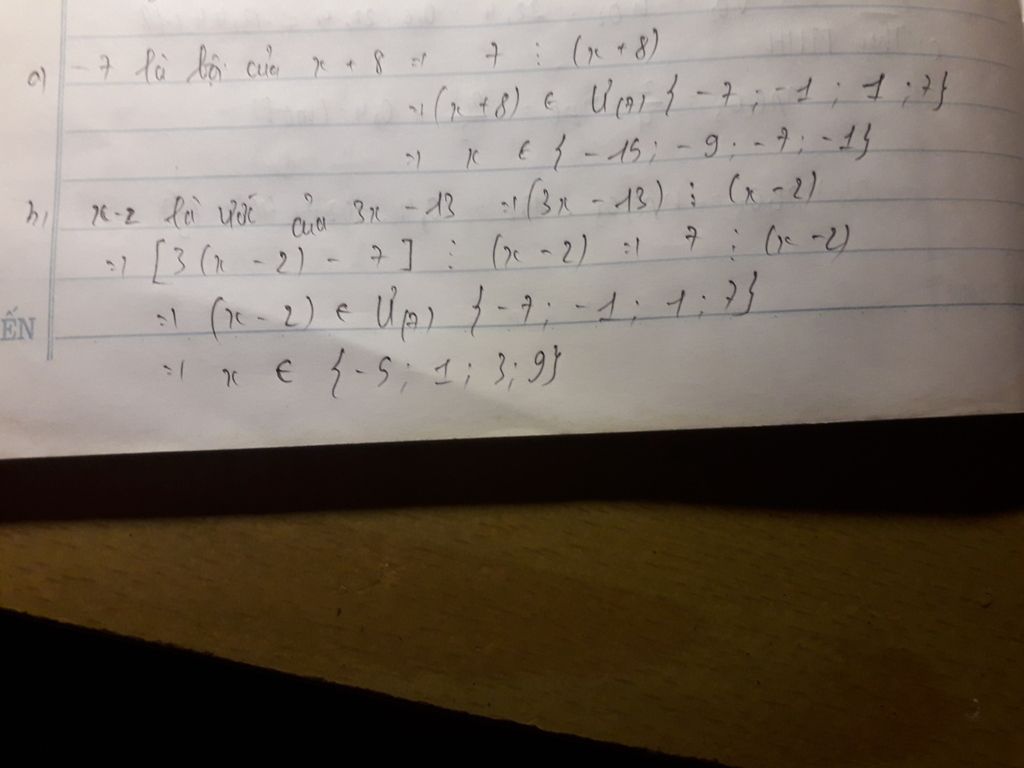 a) -7 là bội của x + 8 => 7 ⋮ (x + 8)
=> (x + 8) ∈ Ư(7) { -7 ; -1 ; 1 ; 7}
=> x ∈ { -15 ; -9 ; -7 ; -1}
b, x-2 là ước của 3x - 13 => (3x - 13) ⋮ (x - 2)
=> [3(x - 2) - 7] ⋮ (x - 2) => 7 ⋮ (x - 2)
=> (x - 2) ∈ Ư(7) { -7 ; -1 ; 1 ; 7}
ẾN
=> x ∈ { -5 ; 1 ; 3 ; 9}